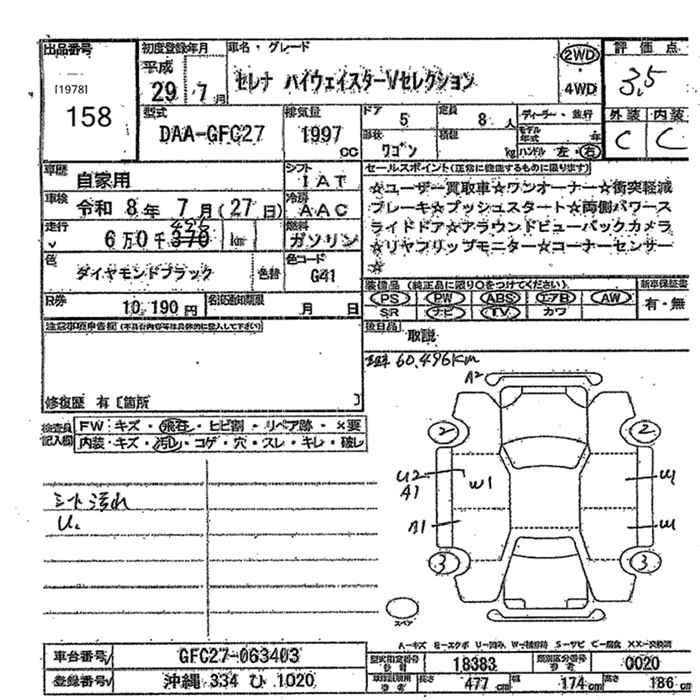 出品番号
[1978]
158
初度登録年月
平成
29 7月
車名・グレード
セレナ ハイウェイスターVセレクション
2WD
・
4WD
評価点
3.5
外装 内装
C C
型式
DAA-GFC27
排気量
1997
cc
ドア
5
定員
8 人
形状
ワゴン
積載
kg
ディーラー・並行
モデル年式 年
ハンドル 左・右
車歴
自家用
シフト
IAT
車検
令和 8年 7月(27日)
冷房
AAC
走行
6万0千370 km
496
燃料
ガソリン
色
ダイヤモンドブラック
色替
色コード
G41
R券
10,190円
名変通知期限
月 日
セールスポイント(正常に機能するものに限ります)
☆ユーザー買取車☆ワンオーナー☆衝突軽減
ブレーキ☆プッシュスタート☆両側パワース
ライドドア☆アラウンドビューバックカメラ
☆リヤフリップモニター☆コーナーセンサー
☆
装備品(純正品に限り○をつけてください)
PS PW ABS エアB AW
SR ナビ TV カワ
新車保証書
有・無
後日品
取説
注意事項申告欄(不具合内容等は具体的に記入して下さい)
修復歴 有〔箇所 〕
60,496km
検査員
記入欄
FW:キズ・飛石・ヒビ割・リペア跡・×要
内装・キズ・汚レ・コゲ・穴・スレ・キレ・破レ
シート汚れ
U.
A2
2
2
U2
A1
W1
A1
3
3
スペア
A―キズ E―エクボ U―凹み W―補修跡 S―サビ C―腐食 XX―交換済
車台番号
GFC27-063403
登録番号
沖縄 334 ひ 1020
型式指定番号
参考
18383
類別区分番号
参考
0020
長さ
477 cm
幅
174 cm
高さ
186 cm